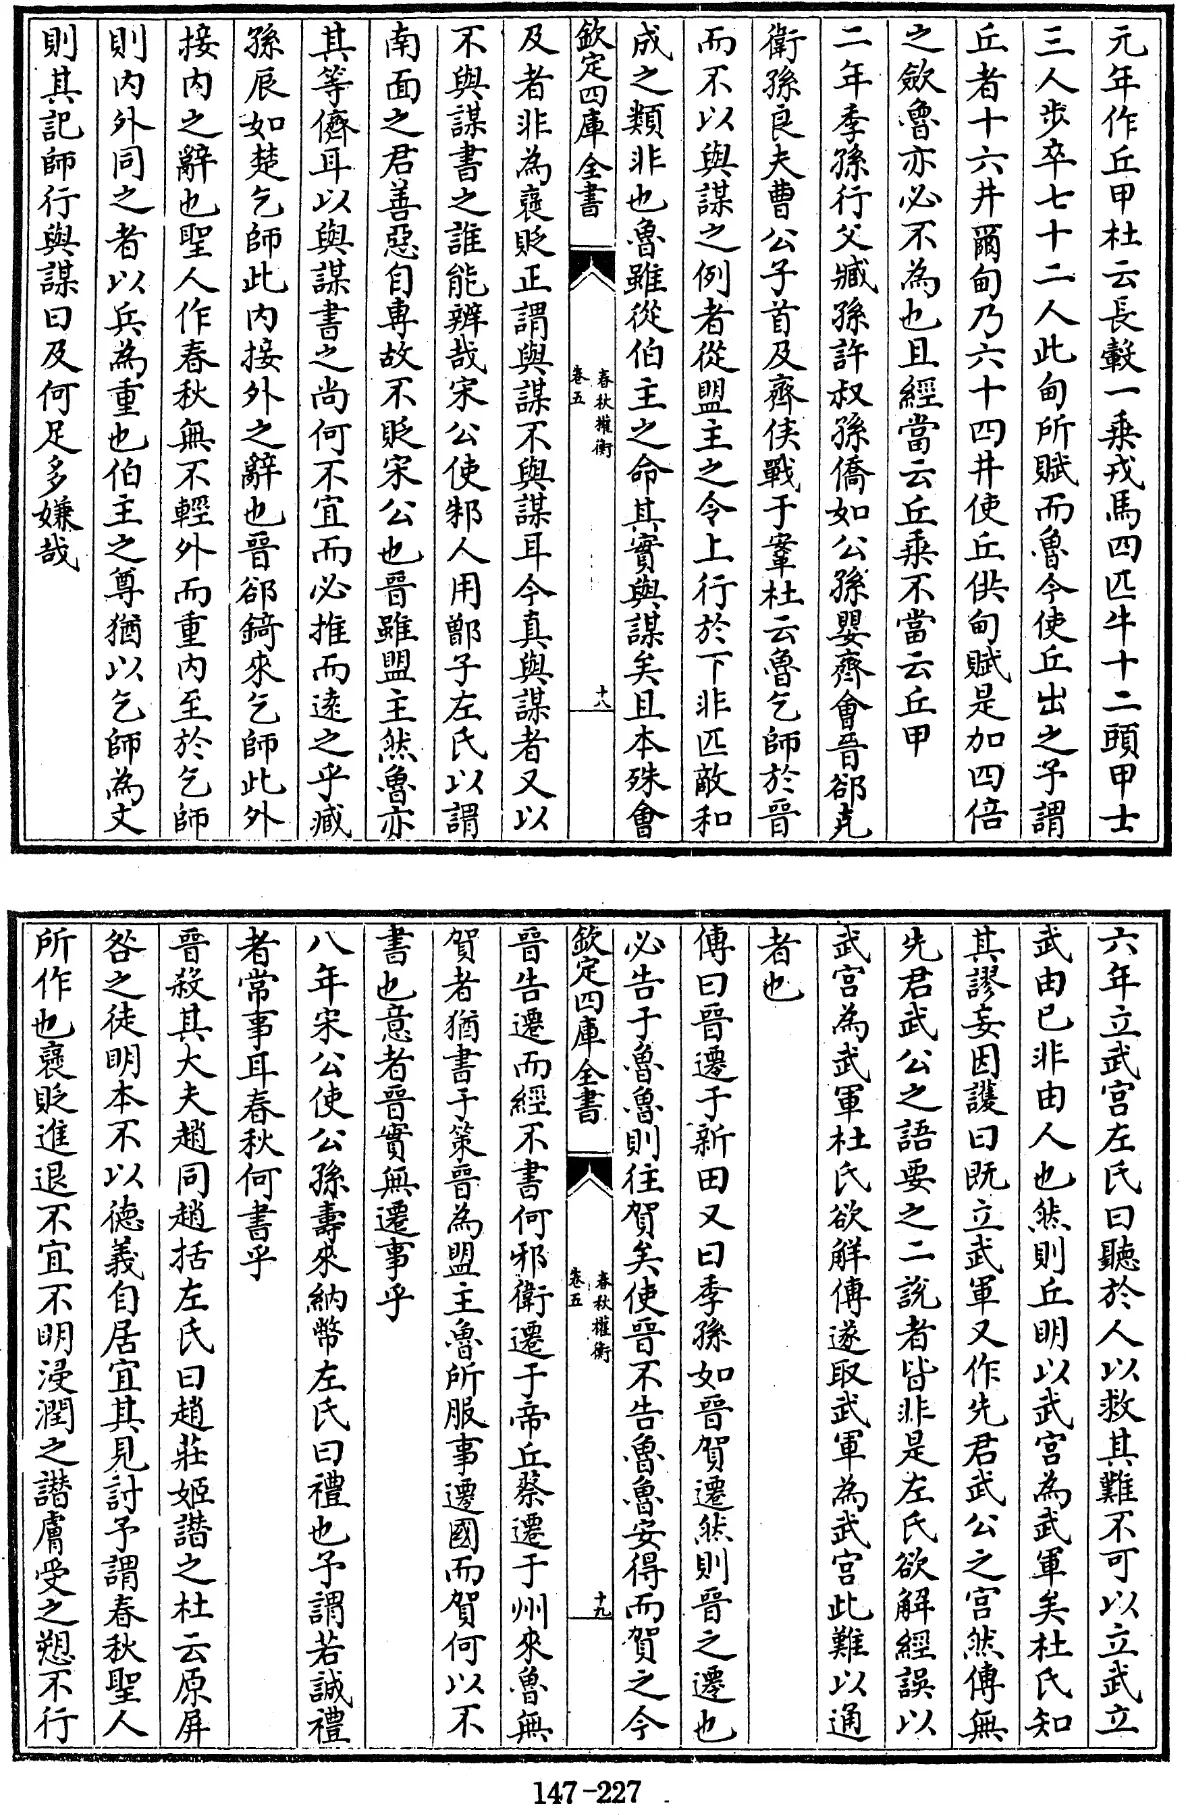 元年作丘甲杜云長轂一乗戎馬四匹牛十二頭甲士
三人步卒七十二人此甸所賦而魯今使丘出之予謂
丘者十六井爾甸乃六十四井使丘供甸賦是加四倍
之歛魯亦必不為也且經當云丘乗不當云丘甲
二年季孫行父臧孫許叔孫僑如公孫嬰齊會晉郤克
衛孫良夫曹公子首及齊侯戰于鞌杜云魯乞師於晉
而不以與謀之例者從盟主之令上行於下非匹敵和
成之類非也魯雖從伯主之命其實與謀矣且本殊會
欽定四庫全書
春秋權衡
卷五
十八
及者非為襃貶正謂與謀不與謀耳今真與謀者又以
不與謀書之誰能辨哉宋公使邾人用鄫子左氏以謂
南面之君善惡自専故不貶宋公也晉雖盟主然魯亦
其等儕耳以與謀書之尚何不宜而必推而遠之乎臧
孫辰如楚乞師此内接外之辭也晉郤錡來乞師此外
接内之辭也聖人作春秋無不輕外而重内至於乞師
則内外同之者以兵為重也伯主之尊猶以乞師為文
則其記師行與謀曰及何足多嫌哉
六年立武宫左氏曰聽於人以救其難不可以立武立
武由已非由人也然則丘明以武宫為武軍矣杜氏知
其謬妄因護曰既立武軍又作先君武公之宫然傳無
先君武公之語要之二説者皆非是左氏欲解經誤以
武宫為武軍杜氏欲解傳遂取武軍為武宫此難以通
者也
傳曰晉遷于新田又曰季孫如晉賀遷然則晉之遷也
必告于魯魯則往賀矣使晉不告魯魯安得而賀之今
欽定四庫全書
春秋權衡
卷五
十九
晉告遷而經不書何邪衛遷于帝丘蔡遷于州來魯無
賀者猶書于策晉為盟主魯所服事遷國而賀何以不
書也意者晉實無遷事乎
八年宋公使公孫壽來納幣左氏曰禮也予謂若誠禮
者常事耳春秋何書乎
晉殺其大夫趙同趙括左氏曰趙莊姬譖之杜云原屏
咎之徒明本不以德義自居宜其見討予謂春秋聖人
所作也襃貶進退不宜不明浸潤之譖膚受之愬不行
147-227